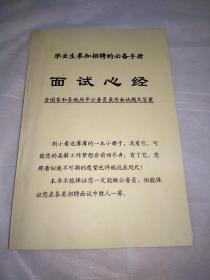 毕业生参加招聘的必备手册
面试心经
含国家和各地历年公务员录用面试题及答案
别小看这薄薄的一本小册子，没有它，可
能您的高薪工作梦想会前功尽弃；有了它，您
那看似遥不可期的愿望也许就近在咫尺！
本书不能保证您一定能做公务员，但能保
证您在各类招聘面试中胜人一筹。